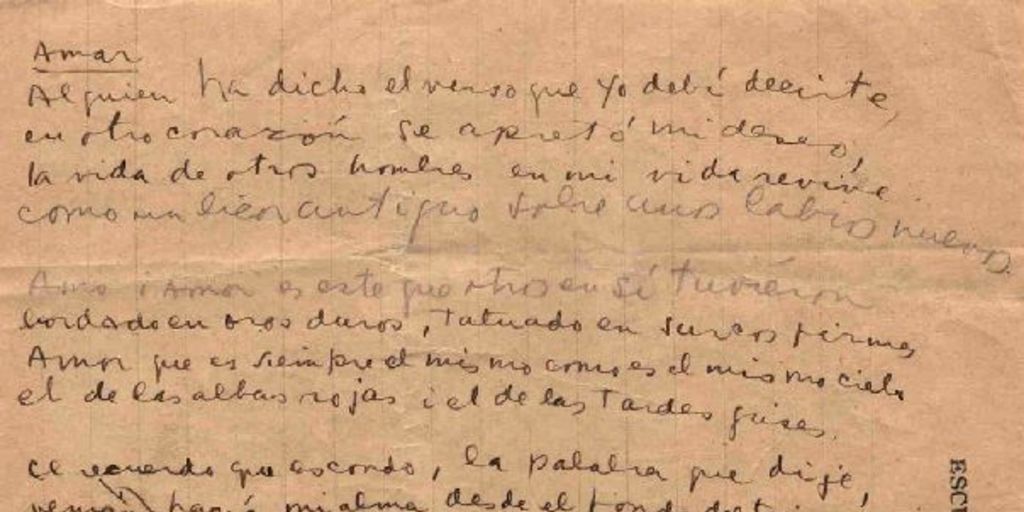 Amar
Alguien ha dicho el verso que yo debí decirte,
en otro corazón se apretó mi deseo,
la vida de otros hombres en mi vida revive
como un licor antiguo sobre unos labios nuevos.
Amo i amor es este que otros en sí tuvieron
bordado en oros duros, tatuado en surcos firmes
Amor que es siempre el mismo como es el mismo cielo
el de las albas rojas i el de las tardes grises.
el recuerdo que escondo, la palabra que dije,
hacia mi alma desde el fondo
ESCU